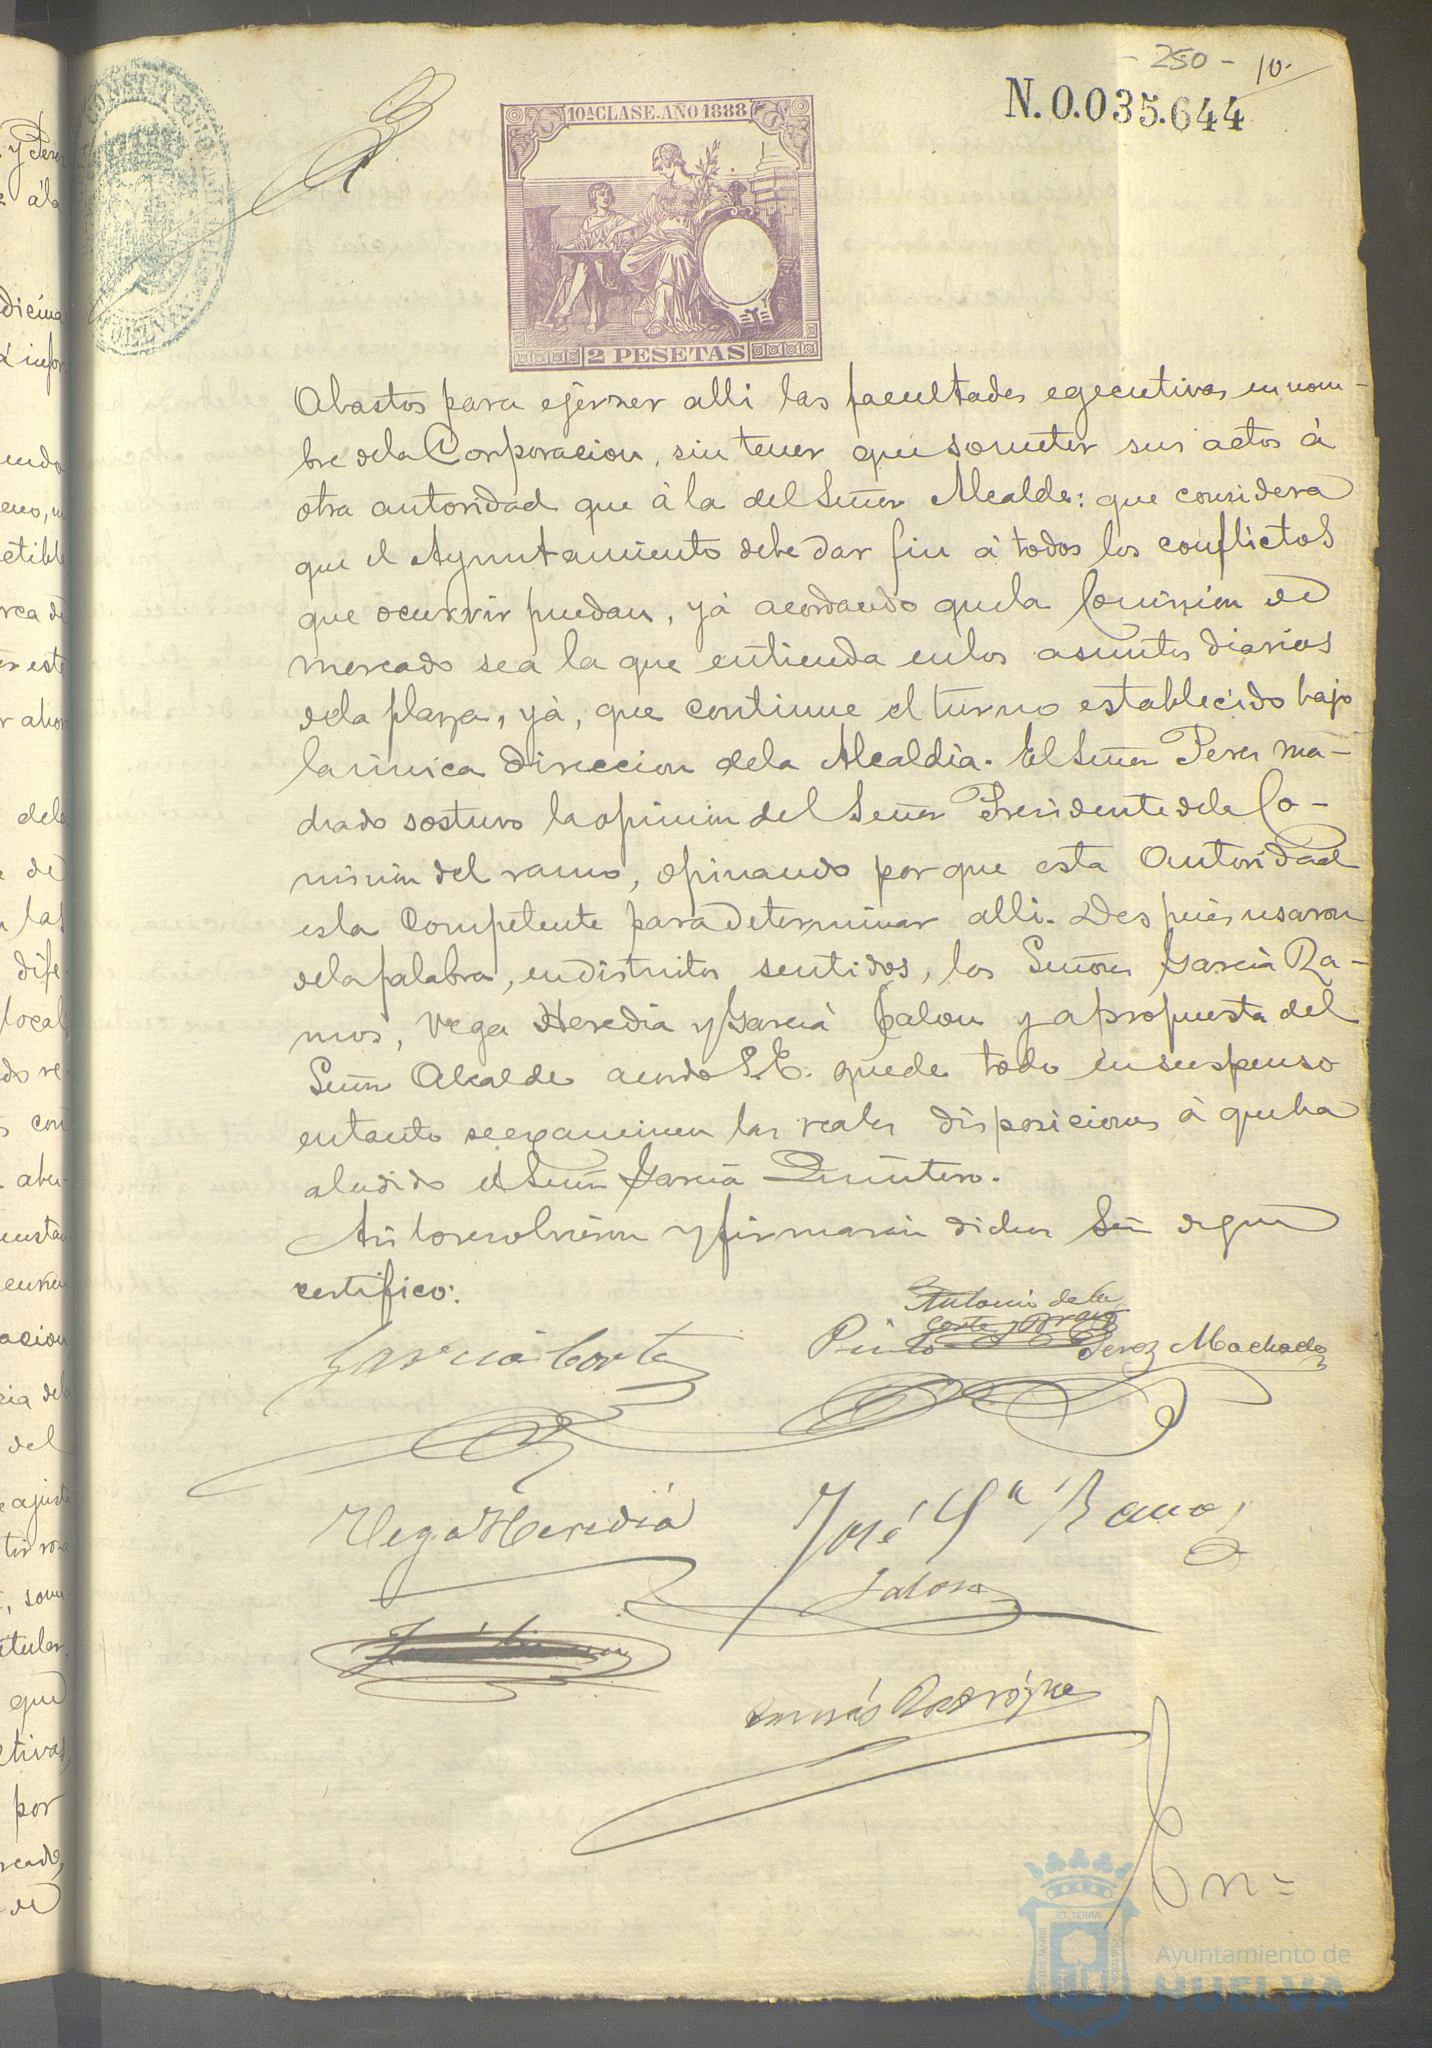 - 250 -
10.
N.0.035.644
10ª CLASE. AÑO 1888
2 PESETAS
Abastos para ejerser alli las facultades egecutivas en nom-
bre dela Corporacion, sin tener que someter sus actos á
otra autoridad que á la del Señor Alcalde: que considera
que el Ayuntamiento debe dar fin á todos los conflictos
que ocurrir puedan, yá acordando quela Comision de
mercado sea la que entienda enlos asuntos diarios
dela plaza, yá, que continue el turno establecido bajo
la unica direccion dela Alcaldia. El Señor Perez Ma-
chado sostuvo la opinion del Señor Presidente dela Co-
mision del ramo, opinando por que esta Autoridad
es la Competente para determinar alli. Despues usaron
dela palabra, en distintos sentidos, los Señores Garcia Ra-
mos, Vega Heredia y Garcia Jalon y a propuesta del
Señor Alcalde acordo S.E. quede todo en suspenso
entanto se examinen las reales disposiciones á que ha
aludido el Señor Garcia Quintero.
Asi lo resolvieron y firmaron dichos Sres de que
certifico:
Antonio de la
Corte y Bravo
Garcia Corte
Pinto
Perez Machado
Vega Heredia
José Gª Ramos
Jalon
Tomás Rodríguez
En =
Ayuntamiento de
HUELVA